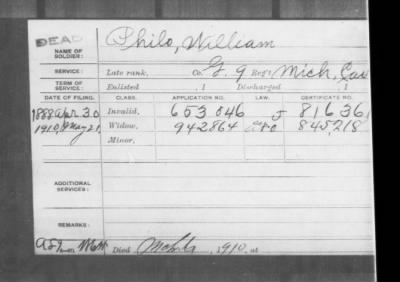 DEAD
NAME OF SOLDIER: Philo, William
SERVICE: Late rank, Co. G. 9 Reg't Mich. Cav
TERM OF SERVICE: Enlisted , 1 Discharged , 1
DATE OF FILING. CLASS. APPLICATION NO. LAW. CERTIFICATE NO.
1888 Apr 30 Invalid, 653.046 816361
1910, May 21 Widow, 942864 845,218
Minor,
ADDITIONAL SERVICES:
REMARKS:
Died 1910, at